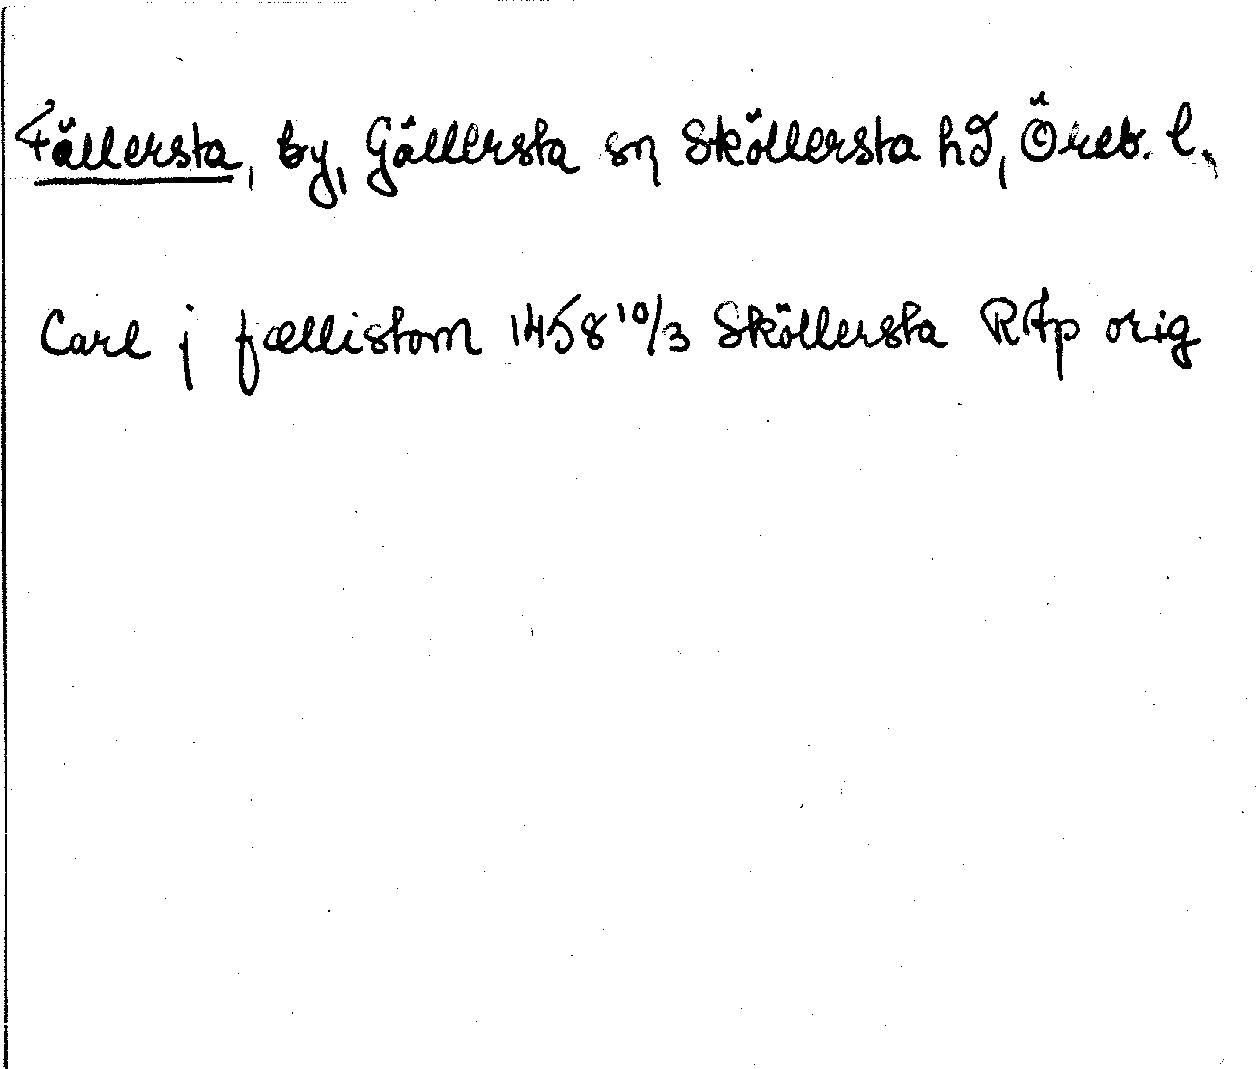 Fällersta, by, Gällersta sn Sköllersta hd, Öreb. l.
Carl j fællistom 1458 10/3 Sköllersta RAp orig